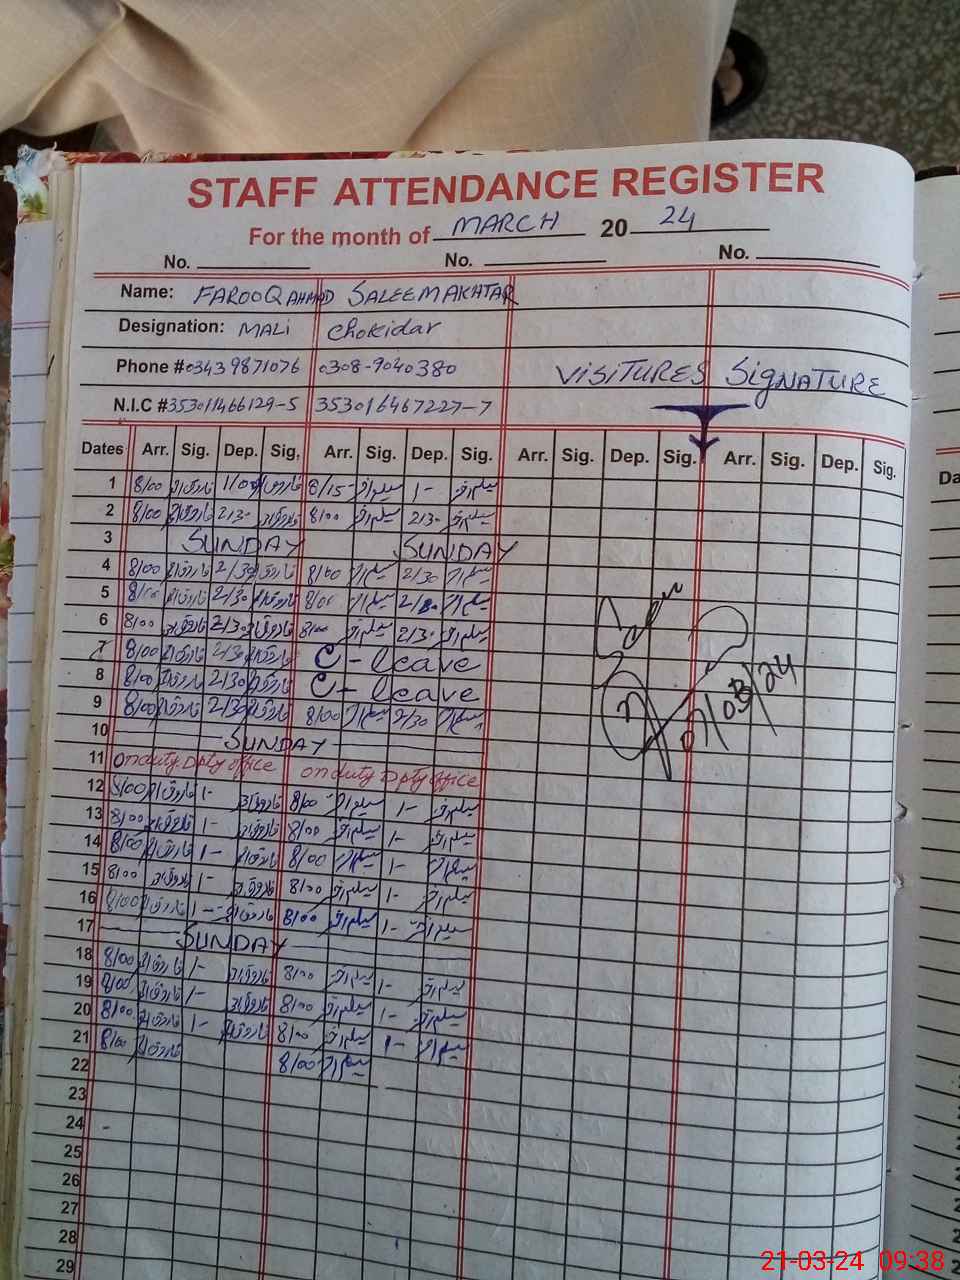 STAFF ATTENDANCE REGISTER
For the month of MARCH 20 24
No. No. No.
Name: FAROOQ AHMAD SALEEM AKHTAR
Designation: MALI Chokidar
Phone # 03439871076 0308-9040380
VISITURES SIGNATURE
N.I.C # 353011466129-5 35301 6467227-7
Dates Arr. Sig. Dep. Sig. Arr. Sig. Dep. Sig. Arr. Sig. Dep. Sig. Arr. Sig. Dep. Sig.
1 8/00 فاروق 1/00 فاروق 8/15 سلیم 1- سلیم
2 8/00 فاروق 2/30 فاروق 8/00 سلیم 2/30 سلیم
3 SUNDAY SUNDAY
4 8/00 فاروق 2/30 فاروق 8/00 سلیم 2/30 سلیم
5 8/00 فاروق 2/30 فاروق 8/00 سلیم 2/30 سلیم
6 8/00 فاروق 2/30 فاروق 8/00 سلیم 2/30 سلیم
7 8/00 فاروق 2/30 فاروق C-leave
8 8/00 فاروق 2/30 فاروق C-leave
9 8/00 فاروق 2/30 فاروق 8/00 سلیم 2/30 سلیم
Seen
07/03/24
10 SUNDAY
11 on duty Dpty office on duty Dpty office
12 8/00 فاروق 1- فاروق 8/00 سلیم 1- سلیم
13 8/00 فاروق 1- فاروق 8/00 سلیم 1- سلیم
14 8/00 فاروق 1- فاروق 8/00 سلیم 1- سلیم
15 8/00 فاروق 1- فاروق 8/00 سلیم 1- سلیم
16 8/00 فاروق 1- فاروق 8/00 سلیم 1- سلیم
17 SUNDAY
18 8/00 فاروق 1- فاروق 8/00 سلیم 1- سلیم
19 8/00 فاروق 1- فاروق 8/00 سلیم 1- سلیم
20 8/00 فاروق 1- فاروق 8/00 سلیم 1- سلیم
21 8/00 فاروق 8/00 سلیم
22
23
24
25
26
27
28
29
Da
21-03-24 09:38